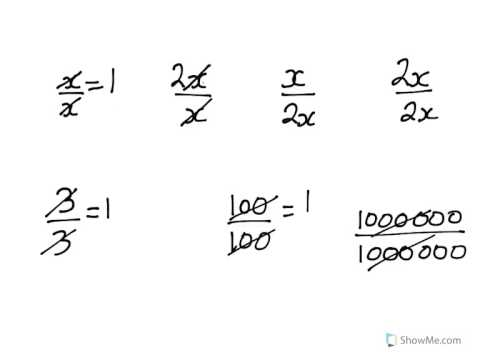 x/x = 1 2x/x x/2x 2x/2x
3/3 = 1 100/100 = 1 1000000/1000000
ShowMe.com